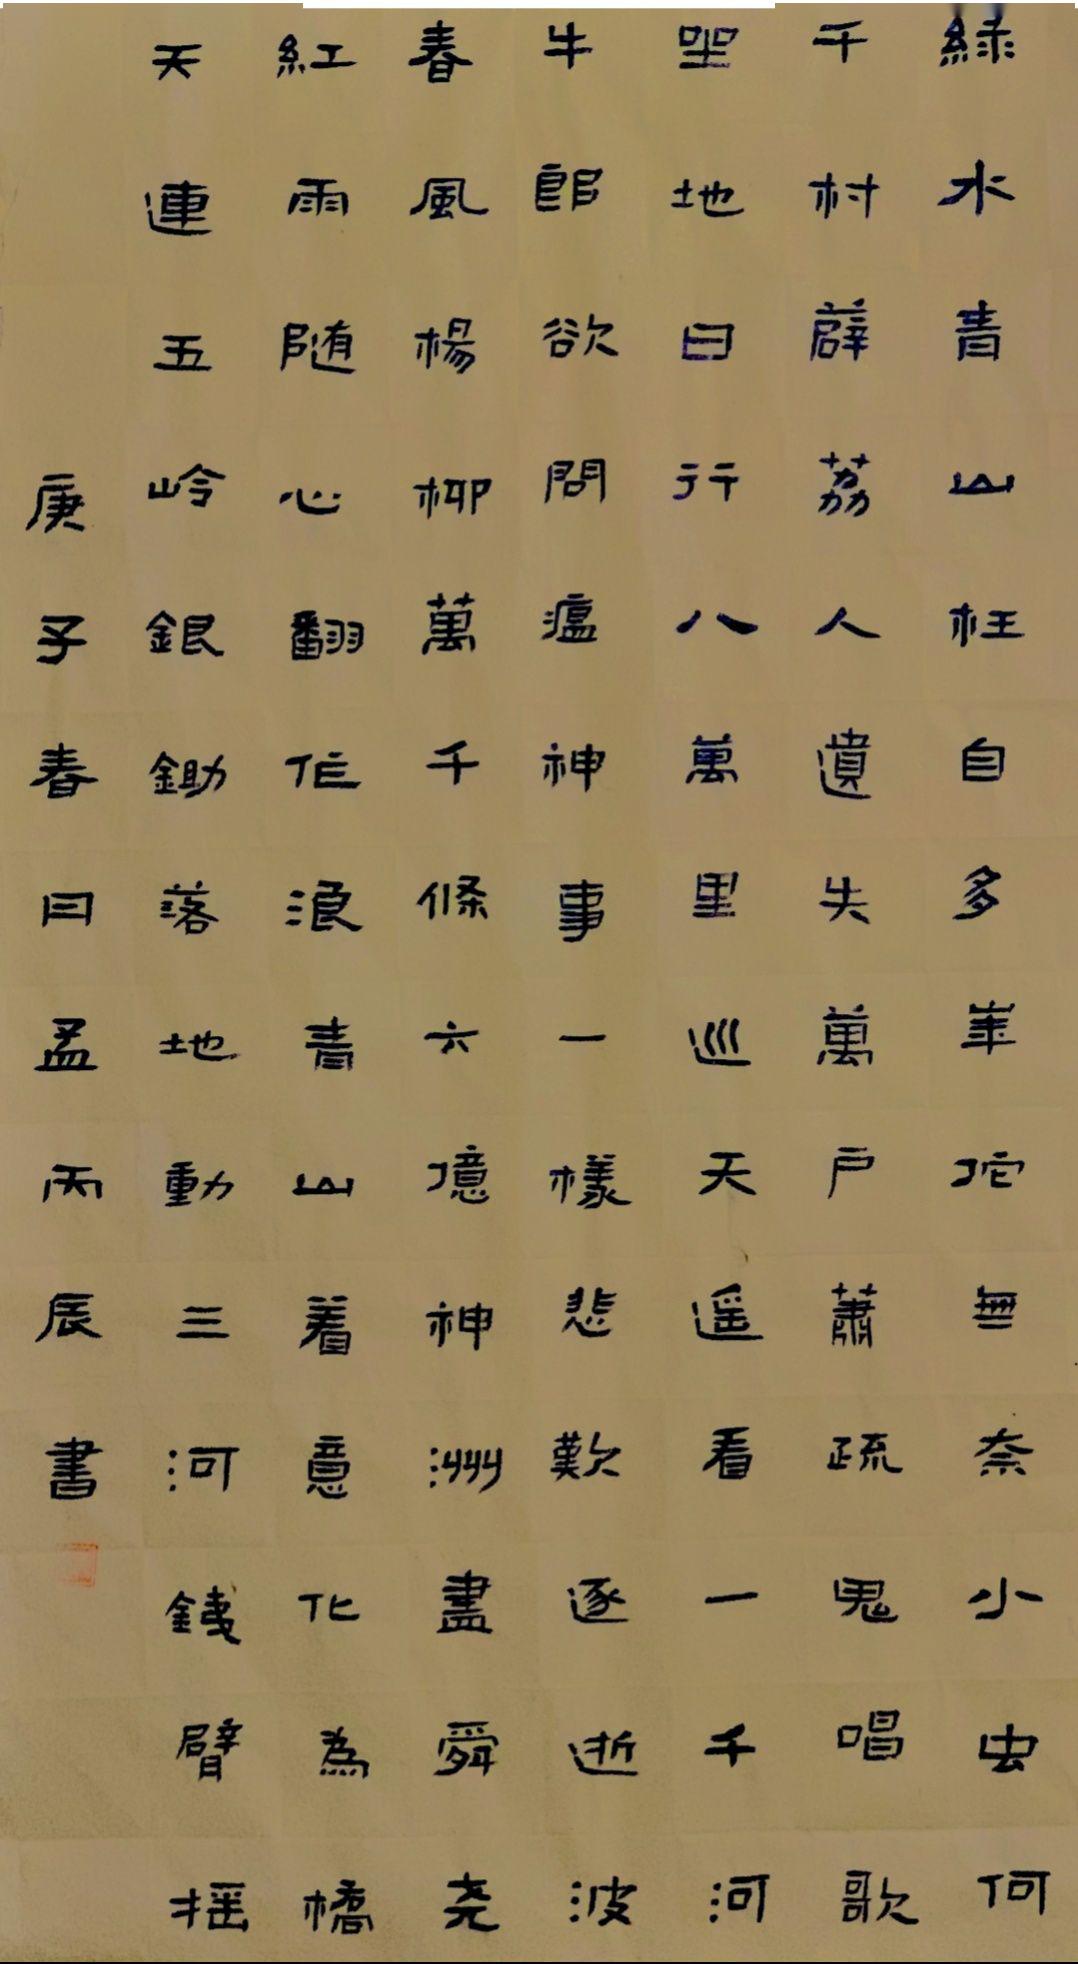 綠水青山枉自多崋佗無奈小虫何
千村薜荔人遺失萬戶蕭疏鬼唱歌
坐地日行八萬里巡天遥看一千河
牛郎欲問瘟神事一樣悲歎逐逝波
春風楊柳萬千條六億神洲盡舜尧
紅雨随心翻作浪青山着意化為橋
天連五岭銀鋤落地動三河鐵臂摇
庚子春日孟丙辰書